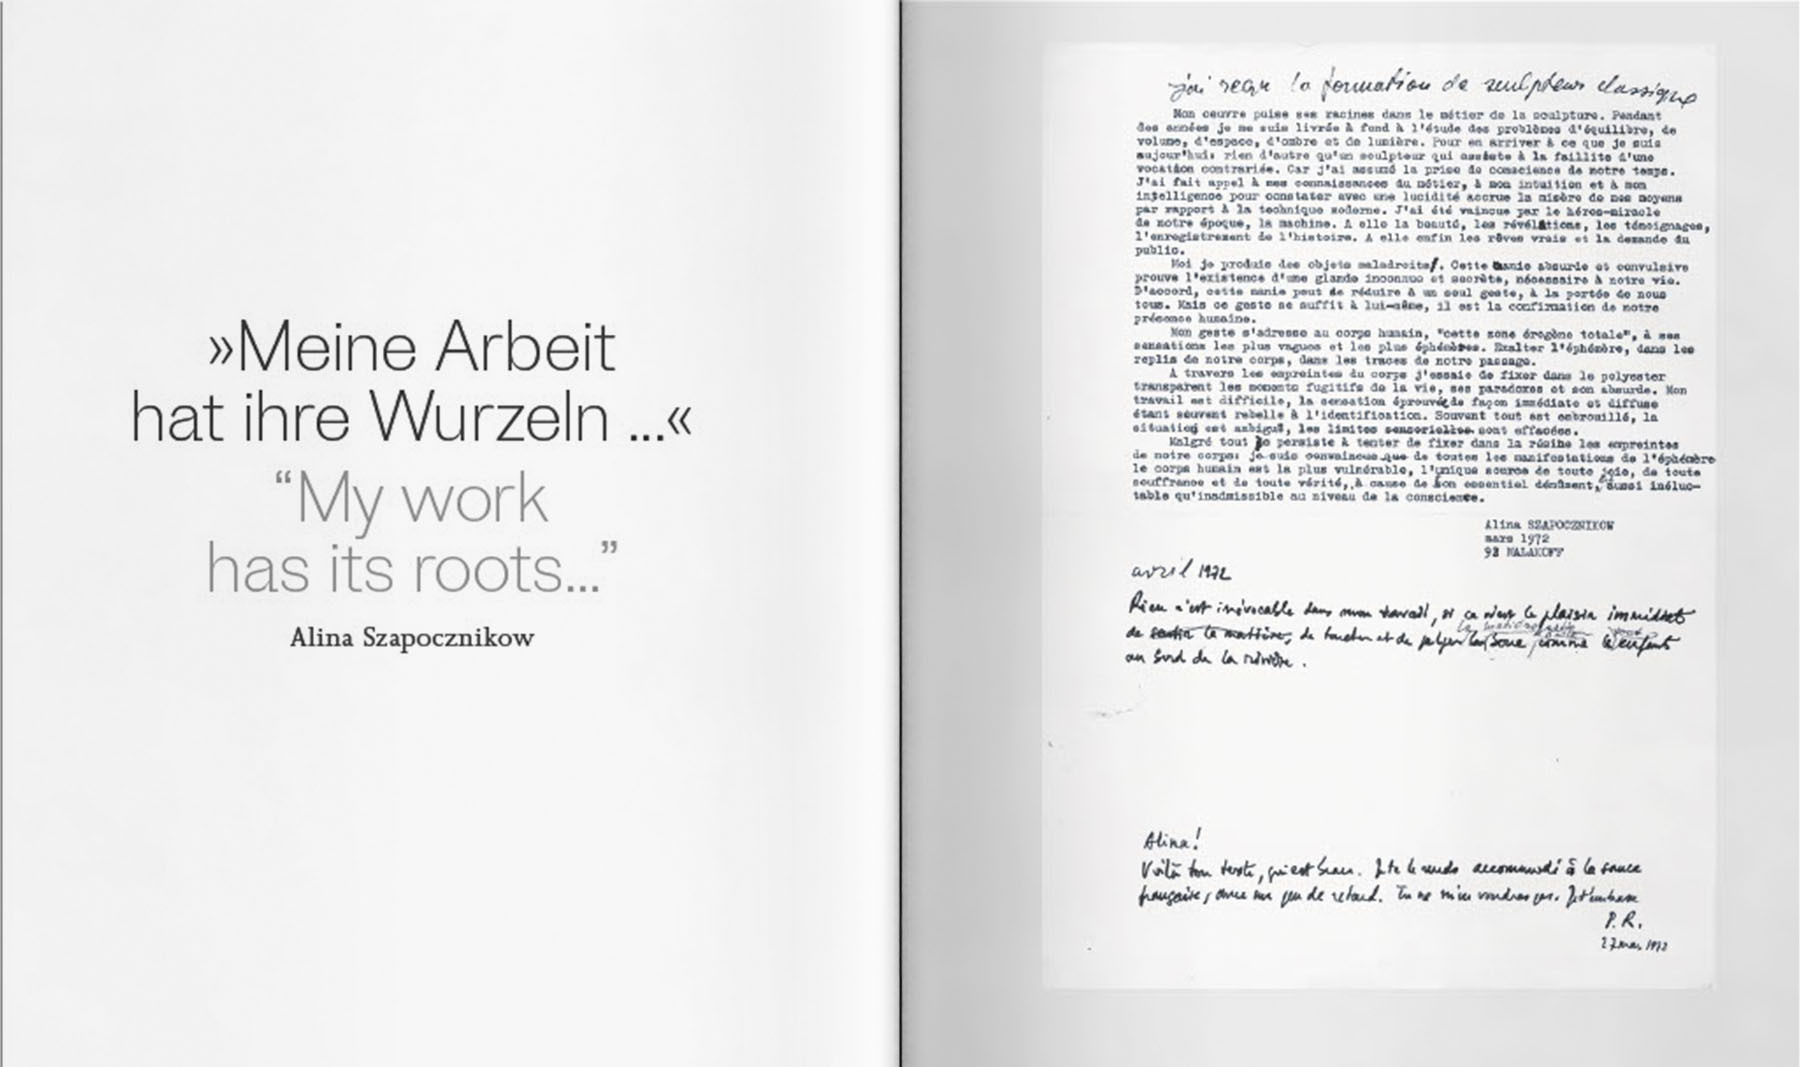 »Meine Arbeit
hat ihre Wurzeln ...«
“My work
has its roots...”
Alina Szapocznikow
j'ai reçu la formation de sculpteur classique
Mon oeuvre puise ses racines dans le métier de la sculpture. Pendant
des années je me suis livrée à fond à l'étude des problèmes d'équilibre, de
volume, d'espace, d'ombre et de lumière. Pour en arriver à ce que je suis
aujourd'hui: rien d'autre qu'un sculpteur qui assiste à la faillite d'une
vocation contrariée. Car j'ai assumé la prise de conscience de notre temps.
J'ai fait appel à mes connaissances du métier, à mon intuition et à mon
intelligence pour constater avec une lucidité accrue la misère de mes moyens
par rapport à la technique moderne. J'ai été vaincue par le héros-miracle
de notre époque, la machine. A elle la beauté, les révélations, les témoignages,
l'enregistrement de l'histoire. A elle enfin les rêves vrais et la demande du
public.
Moi je produis des objets maladroits. Cette manie absurde et convulsive
prouve l'existence d'une glande inconnue et secrète, nécessaire à notre vie.
D'accord, cette manie peut se réduire à un seul geste, à la portée de nous
tous. Mais ce geste se suffit à lui-même, il est la confirmation de notre
présence humaine.
Mon geste s'adresse au corps humain, "cette zone érogène totale", à ses
sensations les plus vagues et les plus éphémères. Exalter l'éphémère, dans les
replis de notre corps, dans les traces de notre passage.
A travers les empreintes du corps j'essaie de fixer dans le polyester
transparent les moments fugitifs de la vie, ses paradoxes et son absurde. Mon
travail est difficile, la sensation éprouvée de façon immédiate et diffuse
étant souvent rebelle à l'identification. Souvent tout est embrouillé, la
situation est ambiguë, les limites sensorielles sont effacées.
Malgré tout je persiste à tenter de fixer dans la résine les empreintes
de notre corps: je suis convaincue que de toutes les manifestations de l'éphémère
le corps humain est la plus vulnérable, l'unique source de toute joie, de toute
souffrance et de toute vérité, à cause de son essentiel dénûment, aussi inéluc-
table qu'inadmissible au niveau de la conscience.
Alina SZAPOCZNIKOW
mars 1972
92 MALAKOFF
avril 1972
Rien n'est irrévocable dans mon travail, si ce n'est le plaisir immédiat
de sentir la matière, de toucher et de la boue comme enfants
au bord de la rivière.
Alina!
Voilà ton texte, qui est beau. Je te le rends accommodé à la sauce
française, avec un peu de retard. Tu ne m'en voudras pas. Je t'embrasse
P.R.
27 mars 1972